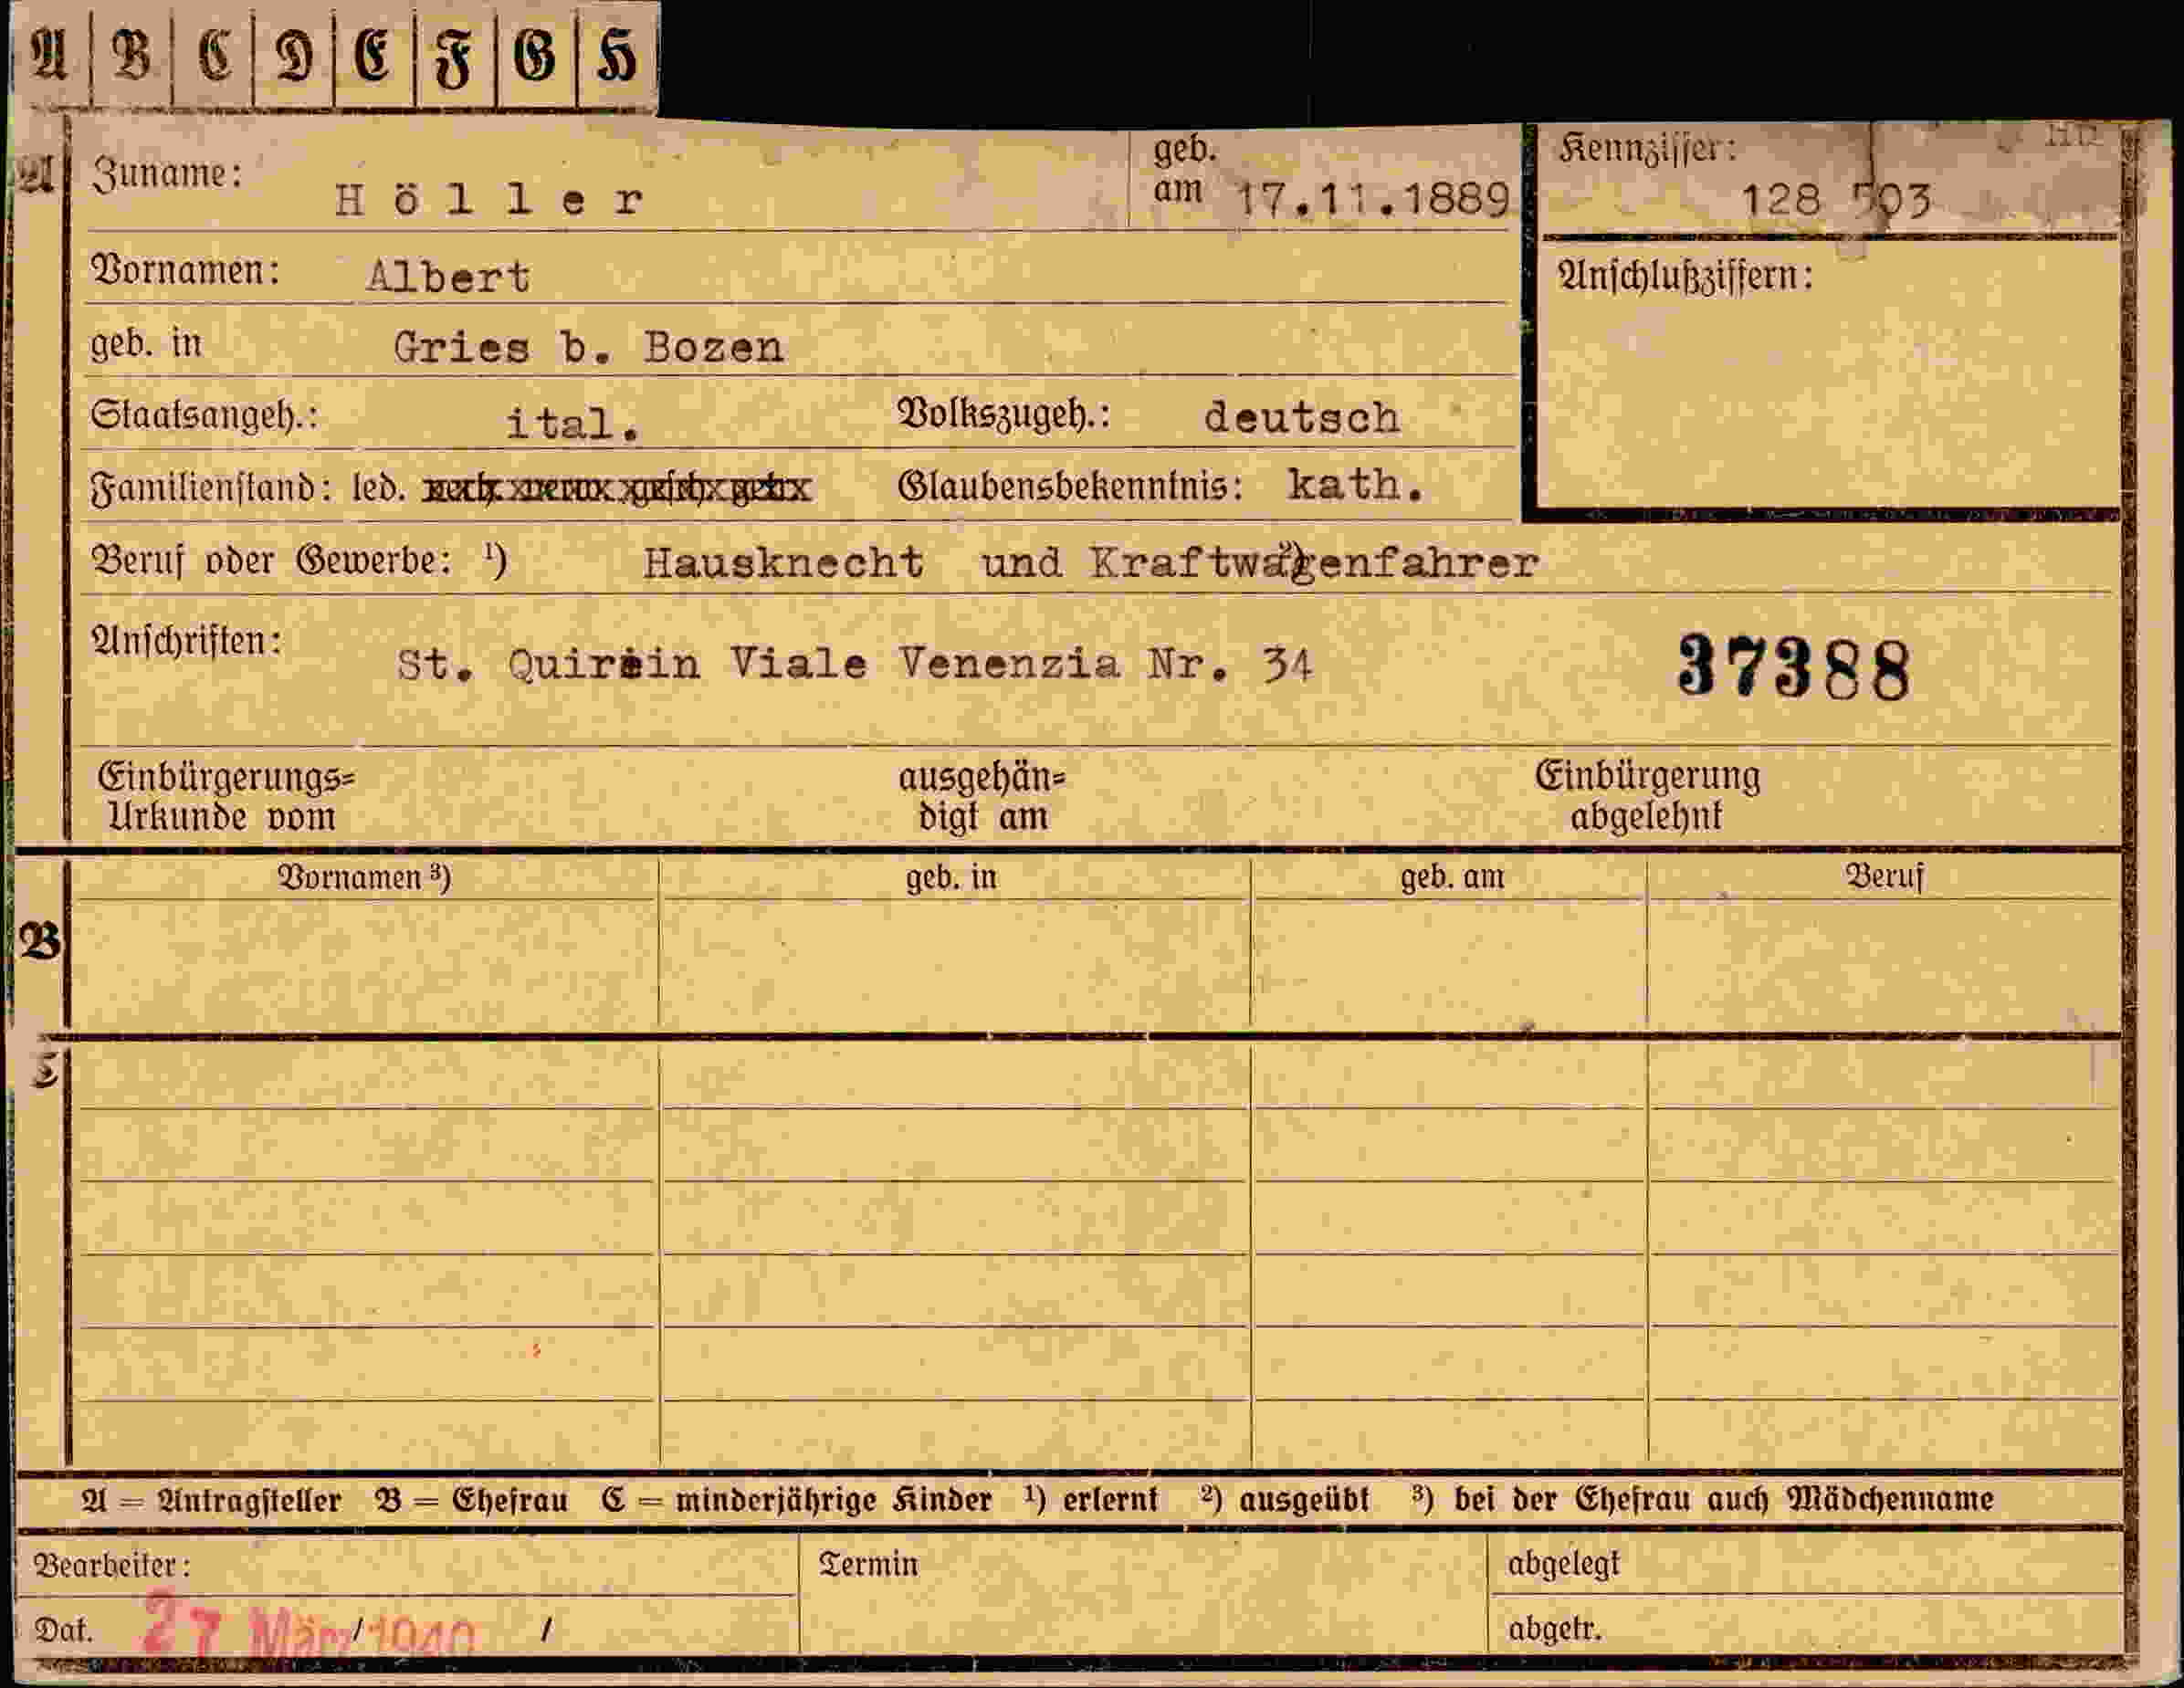 A B C D E F G H
A Zuname: Höller geb. am 17.11.1889 Kennziffer: 128 503
Vornamen: Albert Anschlußziffern:
geb. in Gries b. Bozen
Staatsangeh.: ital. Volkszugeh.: deutsch
Familienstand: led. Glaubensbekenntnis: kath.
Beruf oder Gewerbe: ¹) Hausknecht und Kraftwagenfahrer
Anschriften: St. Quirein Viale Venenzia Nr. 34 37388
Einbürgerungs= ausgehän= Einbürgerung
Urkunde vom digt am abgelehnt
Vornamen ³) geb. in geb. am Beruf
B
C
A = Antragsteller B = Ehefrau C = minderjährige Kinder ¹) erlernt ²) ausgeübt ³) bei der Ehefrau auch Mädchenname
Bearbeiter: Termin abgelegt
Dat. 27 März/1940 / abgetr.